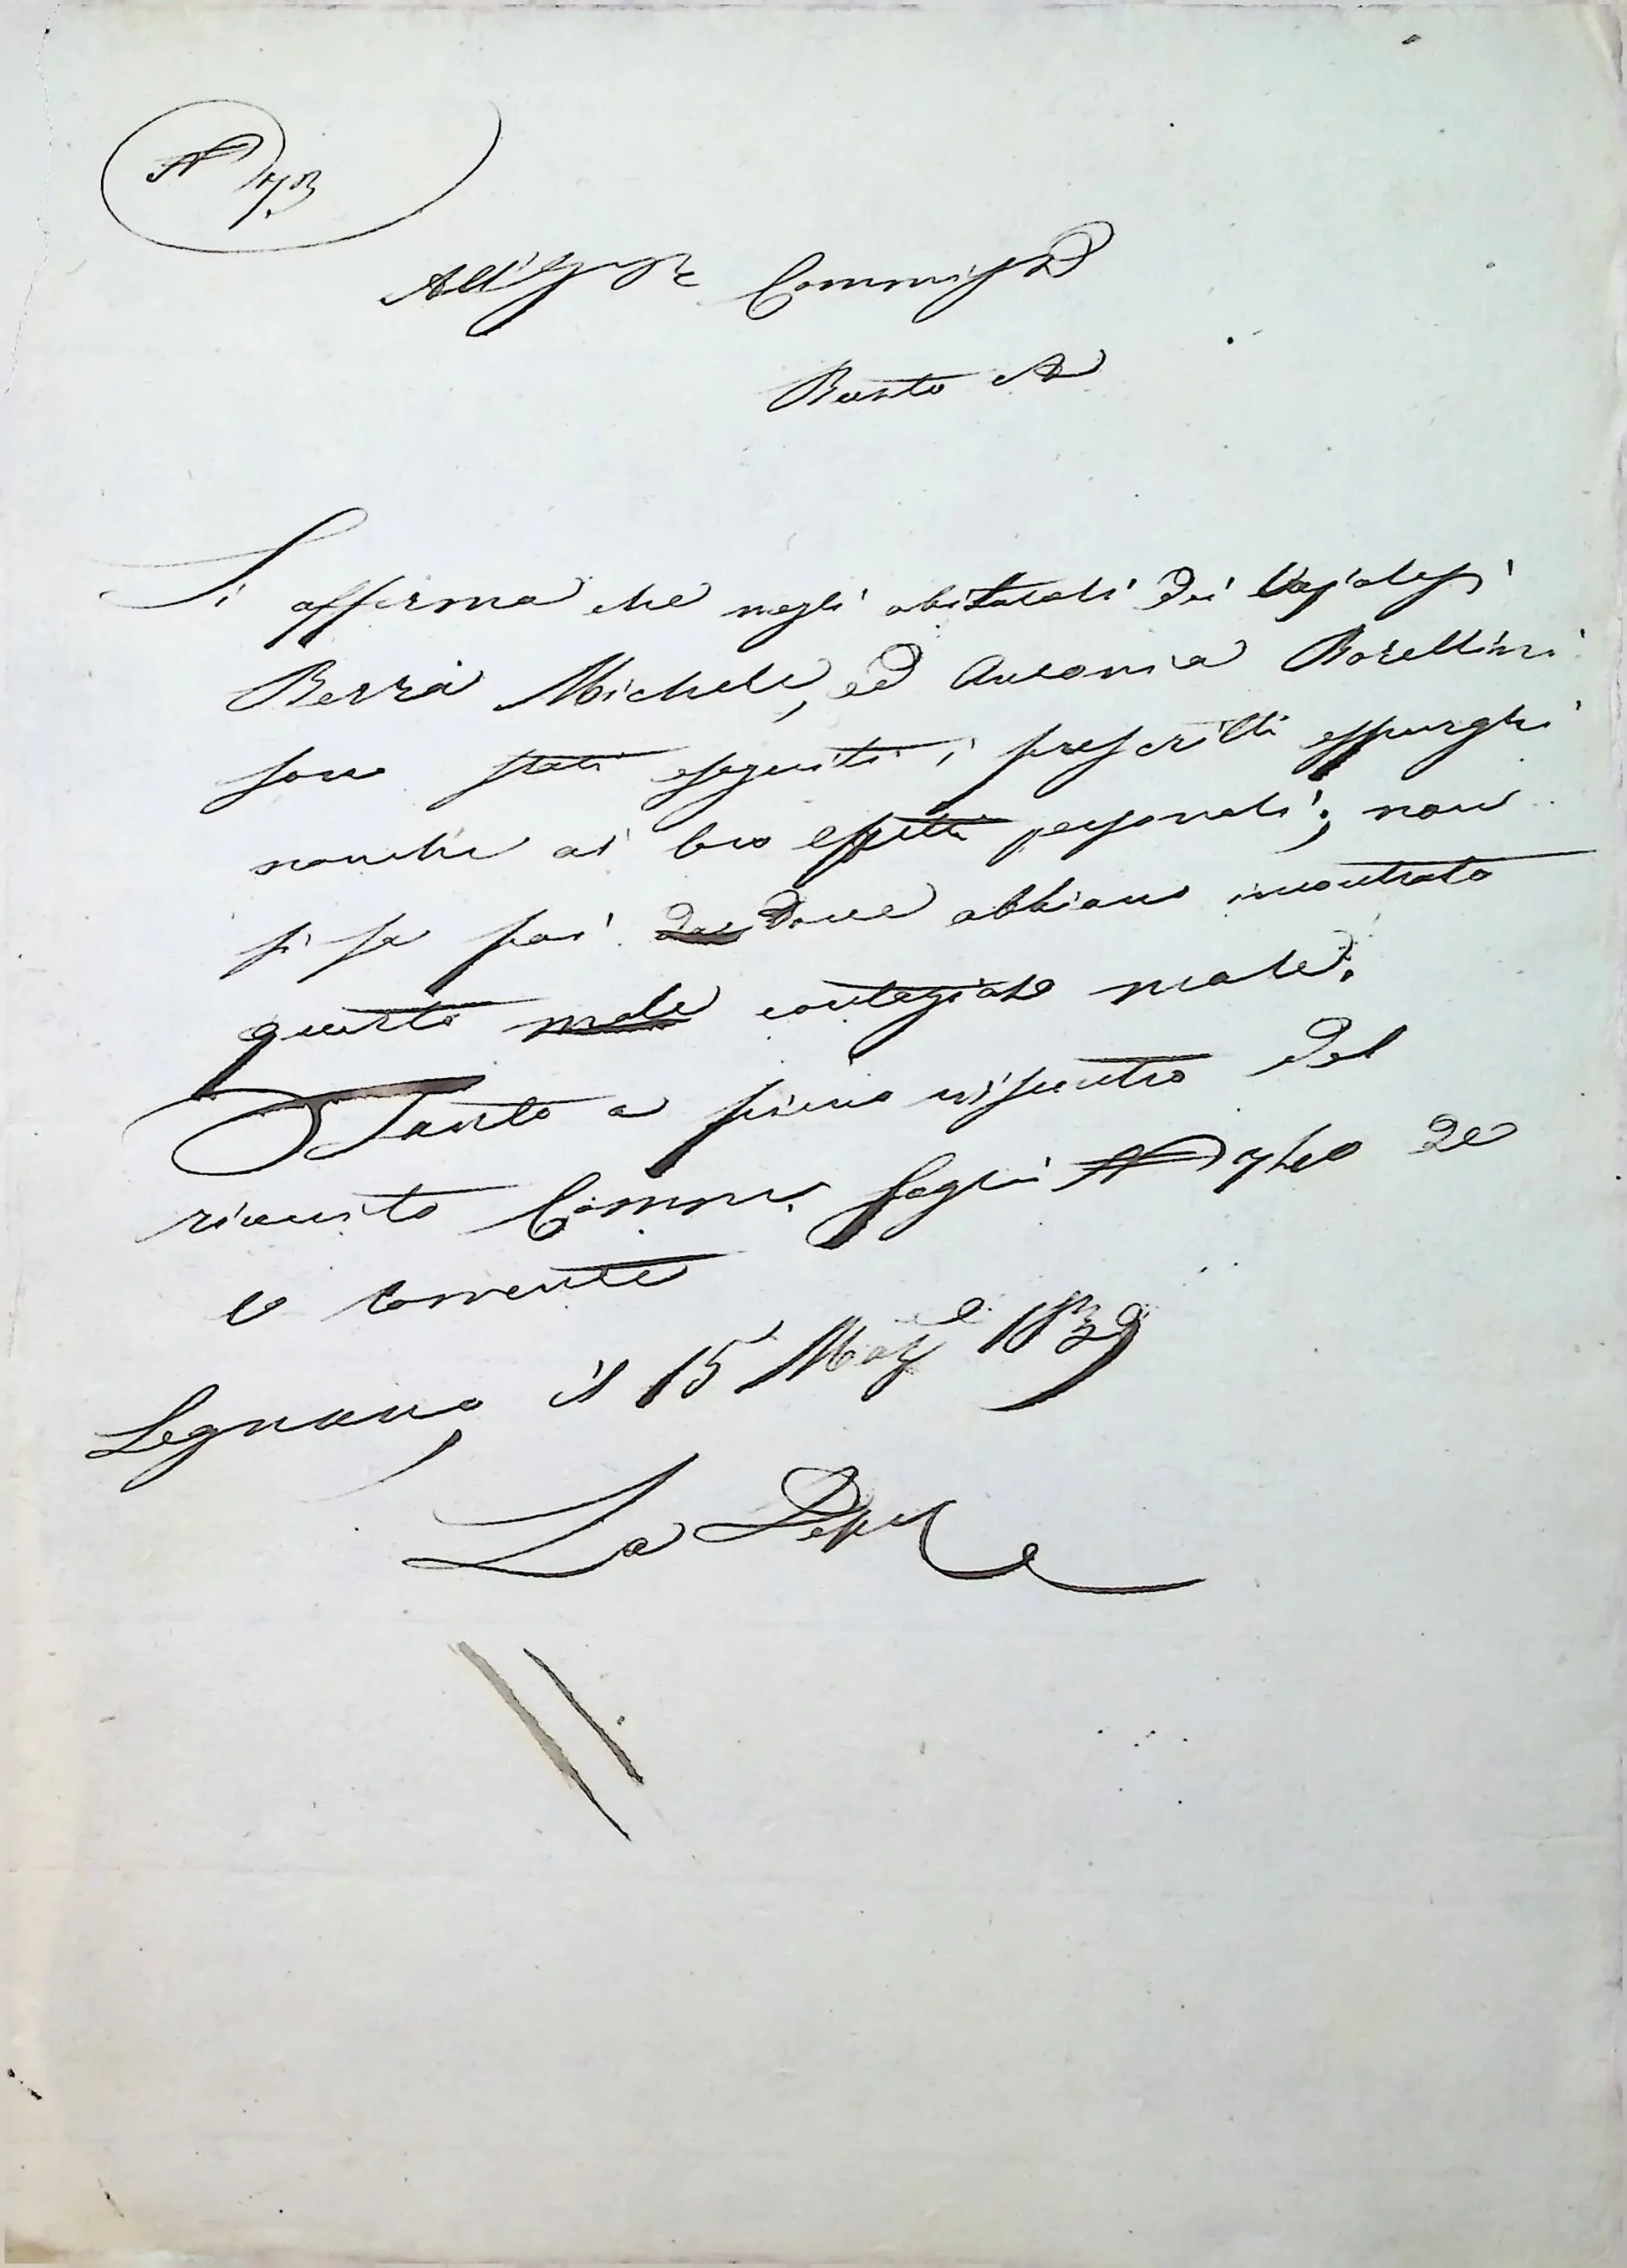 N 173
All' Commiss
Busto A
Si afferma che negli abitacoli dei Vajolosi
Berra Michele, ed Antonia Borellini
sono stati eseguiti i prescritti espurghi
nonché ai loro effetti personali; non
si sa poi dove abbiano incontrato
questo male contagioso male.
Tanto a pieno riscontro del
riverito Comm. foglio N de
corrente
Legnano, il 15 Mag.e 1839
La Dep.e